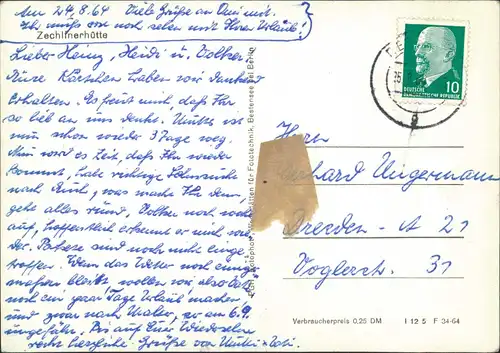 Am 24.8.64 Viele Grüße an Omi mit.
Ihr müßt noch selten mit Ihren Urlaub!
Zechlinerhütte
Lieber Heinz, Heidi u. Volker
Eure Kärtchen haben wir dankend
erhalten. Es freut mich, daß Ihr
so lieb an uns denkt. Mutti ist
nun schon wieder 3 Tage weg.
Nun wird es Zeit, daß Ihr wieder
kommt, habe richtige Sehnsucht
nach Euch, was macht Ihr denn,
geht alles rund, Volker noch
auf, hoffentlich erkennt er mich wie-
der. Pakete sind noch nicht einge
troffen. Wenn das Wetter noch einiger-
maßen bleibt wollen wir, also Vati
noch ein paar Tage Urlaub machen
und zwar nach Malter, so am 6.9.
ungefähr. Bis auf Euer Wiedersehen
recht herzliche Grüße von Mutti + Vati.
Bestensee bei Berlin
für Fototechnik
DEUTSCHE
DEMOKRATISCHE REPUBLIK
10
Herrn
Gerhard Ungermann
Dresden - A 21
Voglerstr. 31
Verbraucherpreis 0,25 DM I 12 5 F 34-64